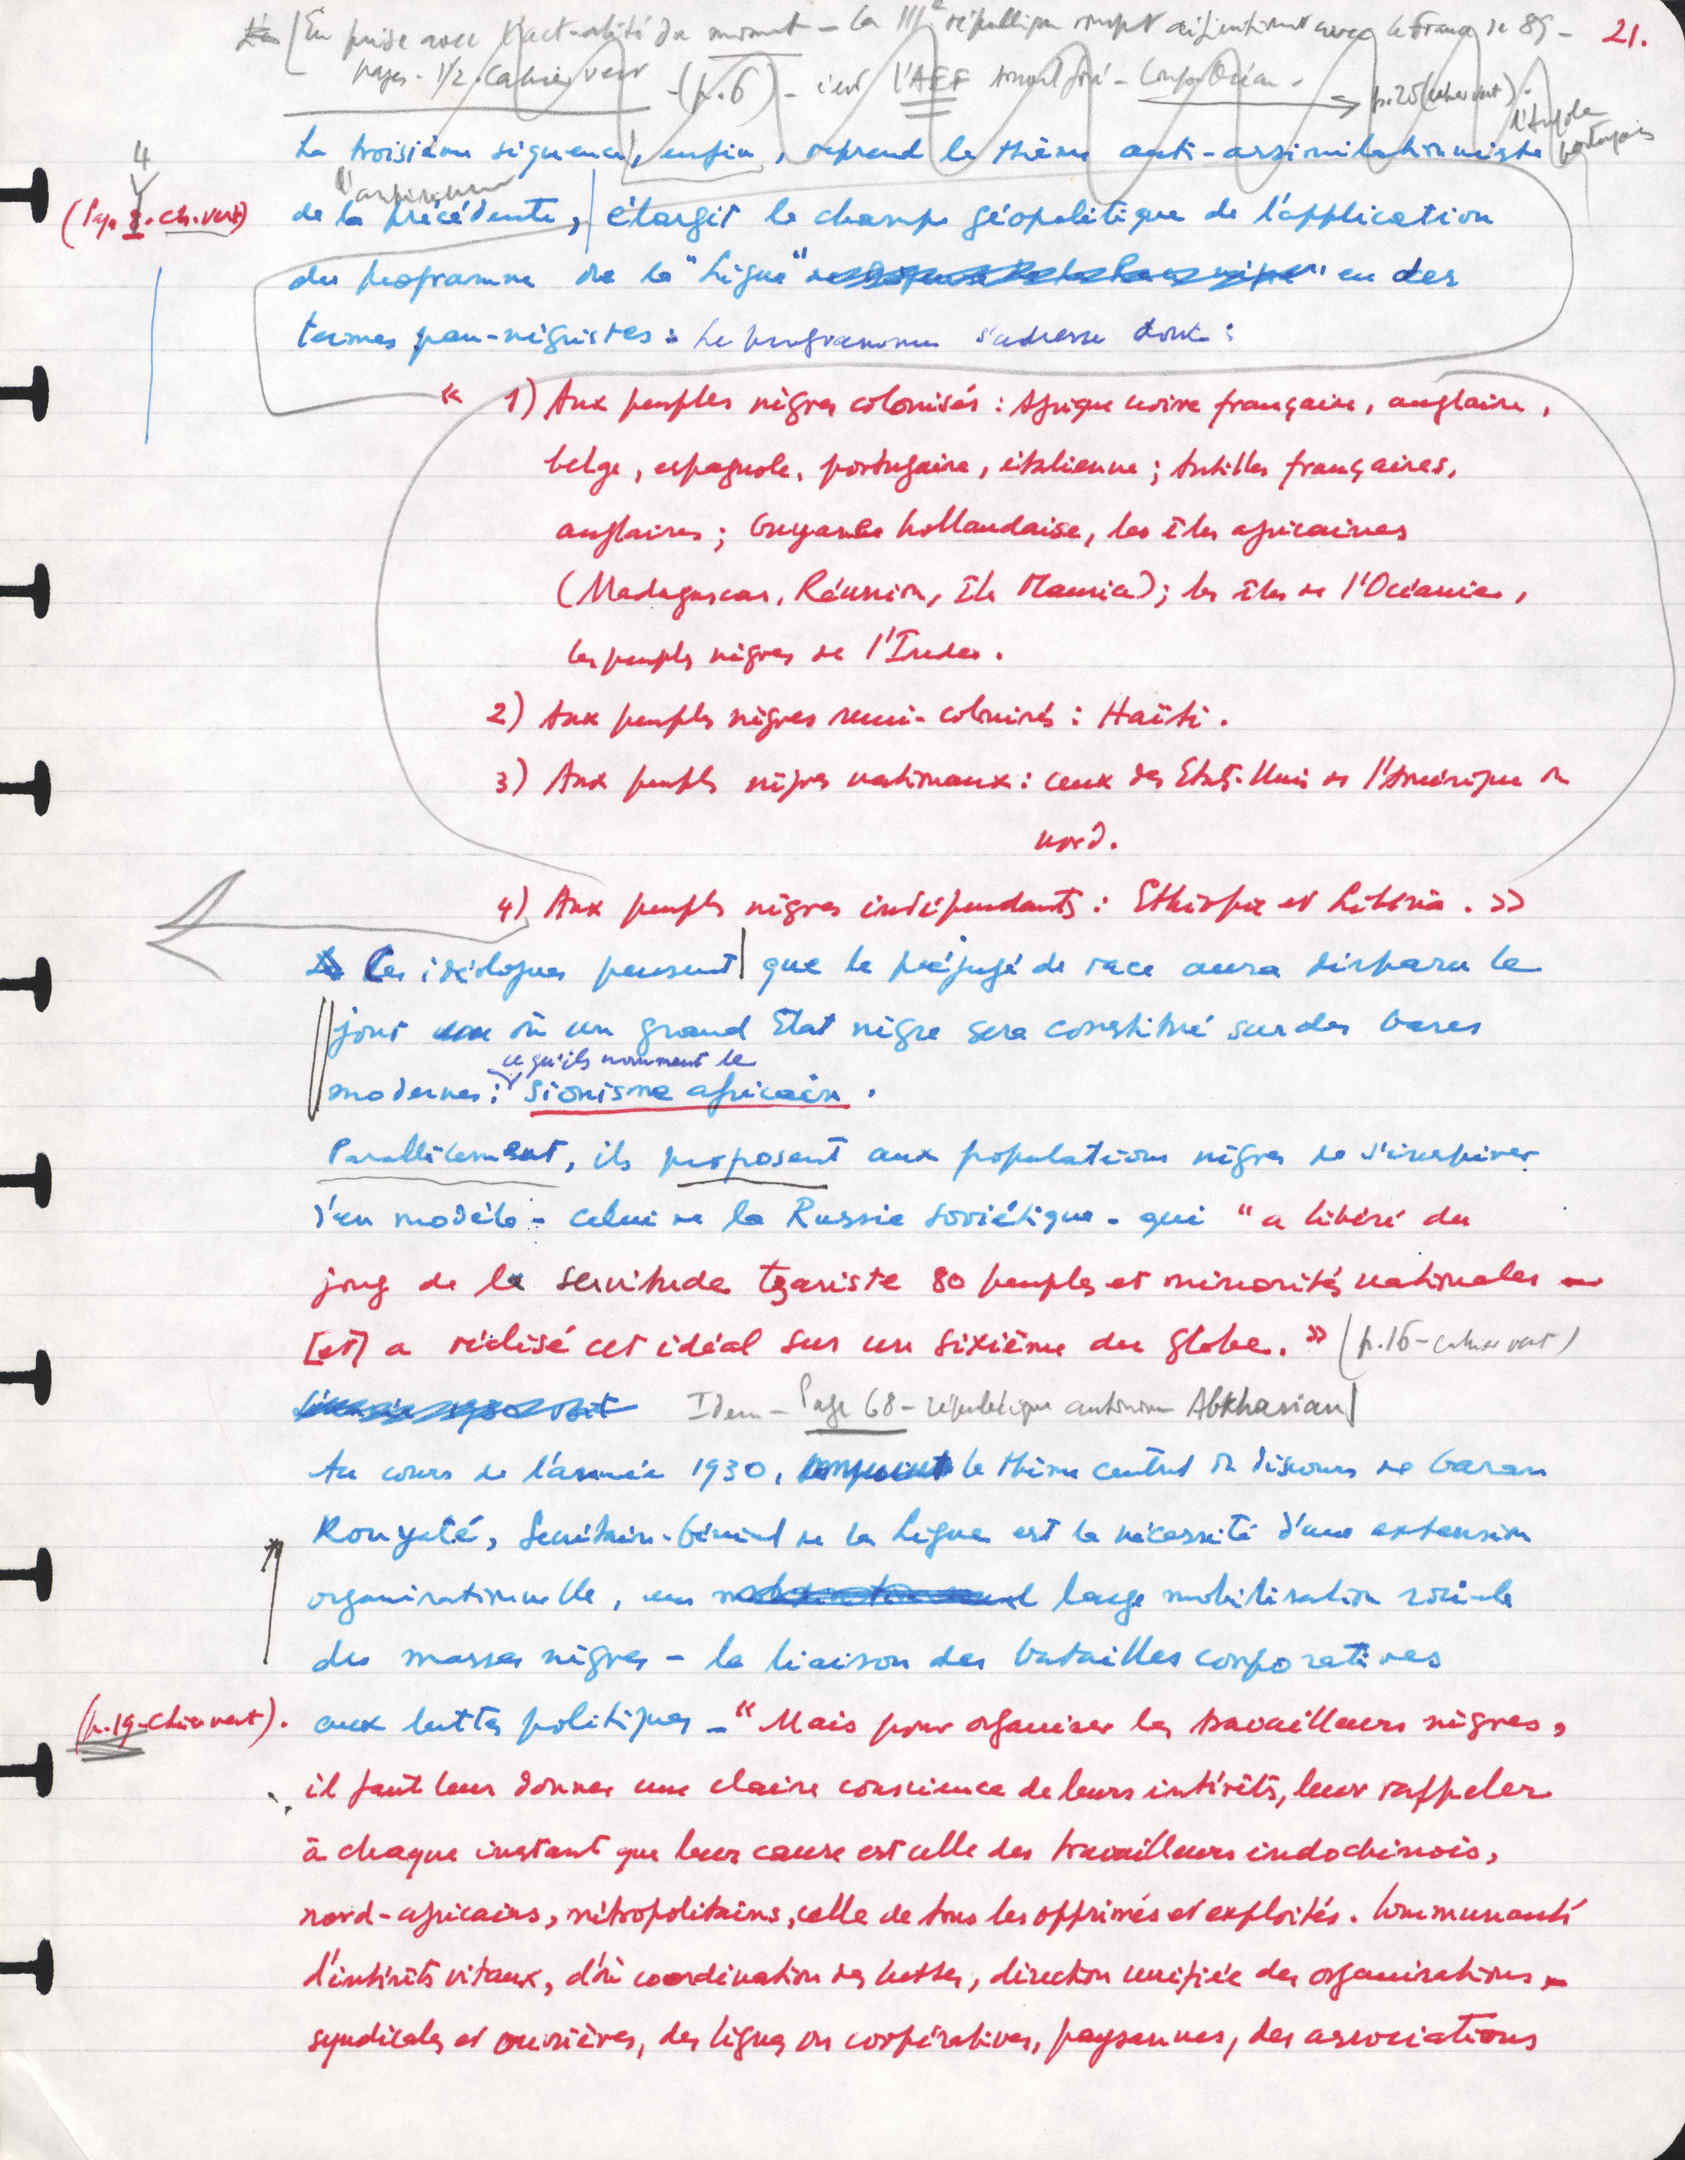 [En prise avec l'actualité du moment - la IIIe république rompt avec la France de 89 - 21.
pages - 1/2 - cahier vert - (p.6) - c'est l'AEF - Congo Océan. → p.25 (cahier vert).
l'Angola portugais
4
La troisième séquence, enfin, reprend le thème anti-assimilationniste
(Page 8. ch. vert) de la précédente, élargit le champ géopolitique de l'application
du programme de la "Ligue" en des
termes pan-négristes : Le programme s'adresse donc :
« 1) Aux peuples nègres colonisés : Afrique noire française, anglaise,
belge, espagnole, portugaise, italienne ; Antilles françaises,
anglaises ; Guyane hollandaise, les îles africaines
(Madagascar, Réunion, Île Maurice) ; les îles de l'Océanie,
les peuples nègres de l'Indes.
2) Aux peuples nègres semi-colonisés : Haïti.
3) Aux peuples nègres nationaux : ceux des Etats-Unis de l'Amérique du
nord.
4) Aux peuples nègres indépendants : Ethiopie et Libéria. »
Ces idéologues pensent que le préjugé de race aura disparu le
jour où un grand Etat nègre sera constitué sur des bases
ce qu'ils nomment le
modernes : Sionisme africain.
Parallèlement, ils proposent aux populations nègres de s'inspirer
d'un modèle - celui de la Russie soviétique - qui "a libéré du
joug de la servitude tzariste 80 peuples et minorités nationales -
[et] a réalisé cet idéal sur un sixième du globe. » (p.16 - cahier vert)
Idem - Page 68 - république autonome Abkhasian
Au cours de l'année 1930, le thème central du discours de Garan
Kouyaté, Secrétaire-Général de la Ligue est la nécessité d'une extension
organisationnelle, une large mobilisation sociale
des masses nègres - la liaison des batailles corporatives
(p.19 - cahier vert). aux luttes politiques - "Mais pour organiser les travailleurs nègres,
il faut leur donner une claire conscience de leurs intérêts, leur rappeler
à chaque instant que leur cause est celle des travailleurs indochinois,
nord-africains, métropolitains, celle de tous les opprimés et exploités. Communauté
d'intérêts vitaux, d'où coordination des luttes, direction unifiée des organisations
syndicales et ouvrières, des ligues ou coopératives, paysannes, des associations